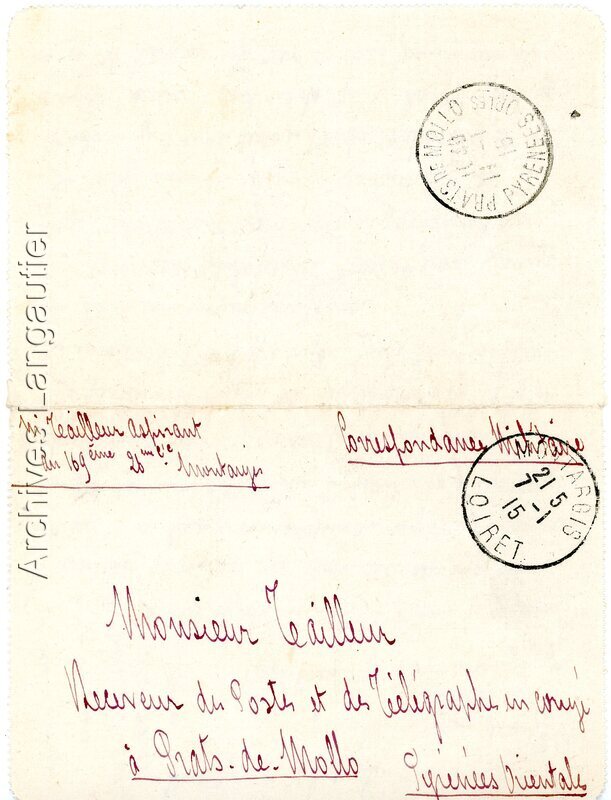 PRATS DE MOLLO PYRENEES OLES
11 -1
15
Archives Langautier
M. Tailleur aspirant
au 169ème 26ème Cie Montargis
Correspondance Militaire
MONTARGIS
21 5
7 -1
15
LOIRET
Monsieur Tailleur
Receveur des Postes et des Télégraphes en congé
à Prats-de-Mollo
Pyrénées Orientales